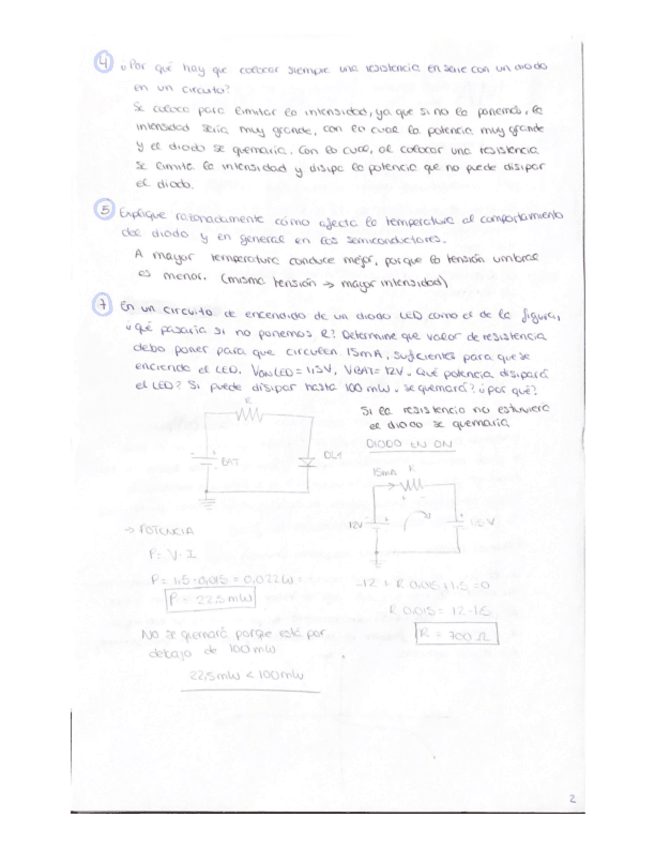 4 ¿Por qué hay que colocar siempre una resistencia en serie con un diodo
en un circuito?
Se coloca para limitar la intensidad, ya que si no la ponemos, la
intensidad sería muy grande, con lo cual la potencia muy grande
y el diodo se quemaría. Con lo cual, al colocar una resistencia
se limita la intensidad y disipa la potencia que no puede disipar
el diodo.
5 Explique razonadamente cómo afecta la temperatura al comportamiento
del diodo y en general en los semiconductores.
A mayor temperatura conduce mejor, porque la tensión umbral
es menor. (misma tensión → mayor intensidad)
7 En un circuito de encendido de un diodo LED como el de la figura,
¿qué pasaría si no ponemos R? Determine que valor de resistencia
debo poner para que circulen 15mA, suficientes para que se
encienda el LED. VON LED = 1,5V, VBAT = 12V. Qué potencia disipará
el LED? Si puede disipar hasta 100 mW. se quemará? ¿por qué?
Si la resistencia no estuviera
el diodo se quemaría
DIODO EN ON
R
BAT
DL1
15mA R
12V
→ POTENCIA
P = V · I
P = 1,5 · 0,015 = 0,022W =
P = 22.5mW
-12 + R 0,015 + 1,5 = 0
R 0,015 = 12 - 1,5
R = 700 Ω
No se quemará porque está por
debajo de 100 mW
22,5mW < 100mW
2